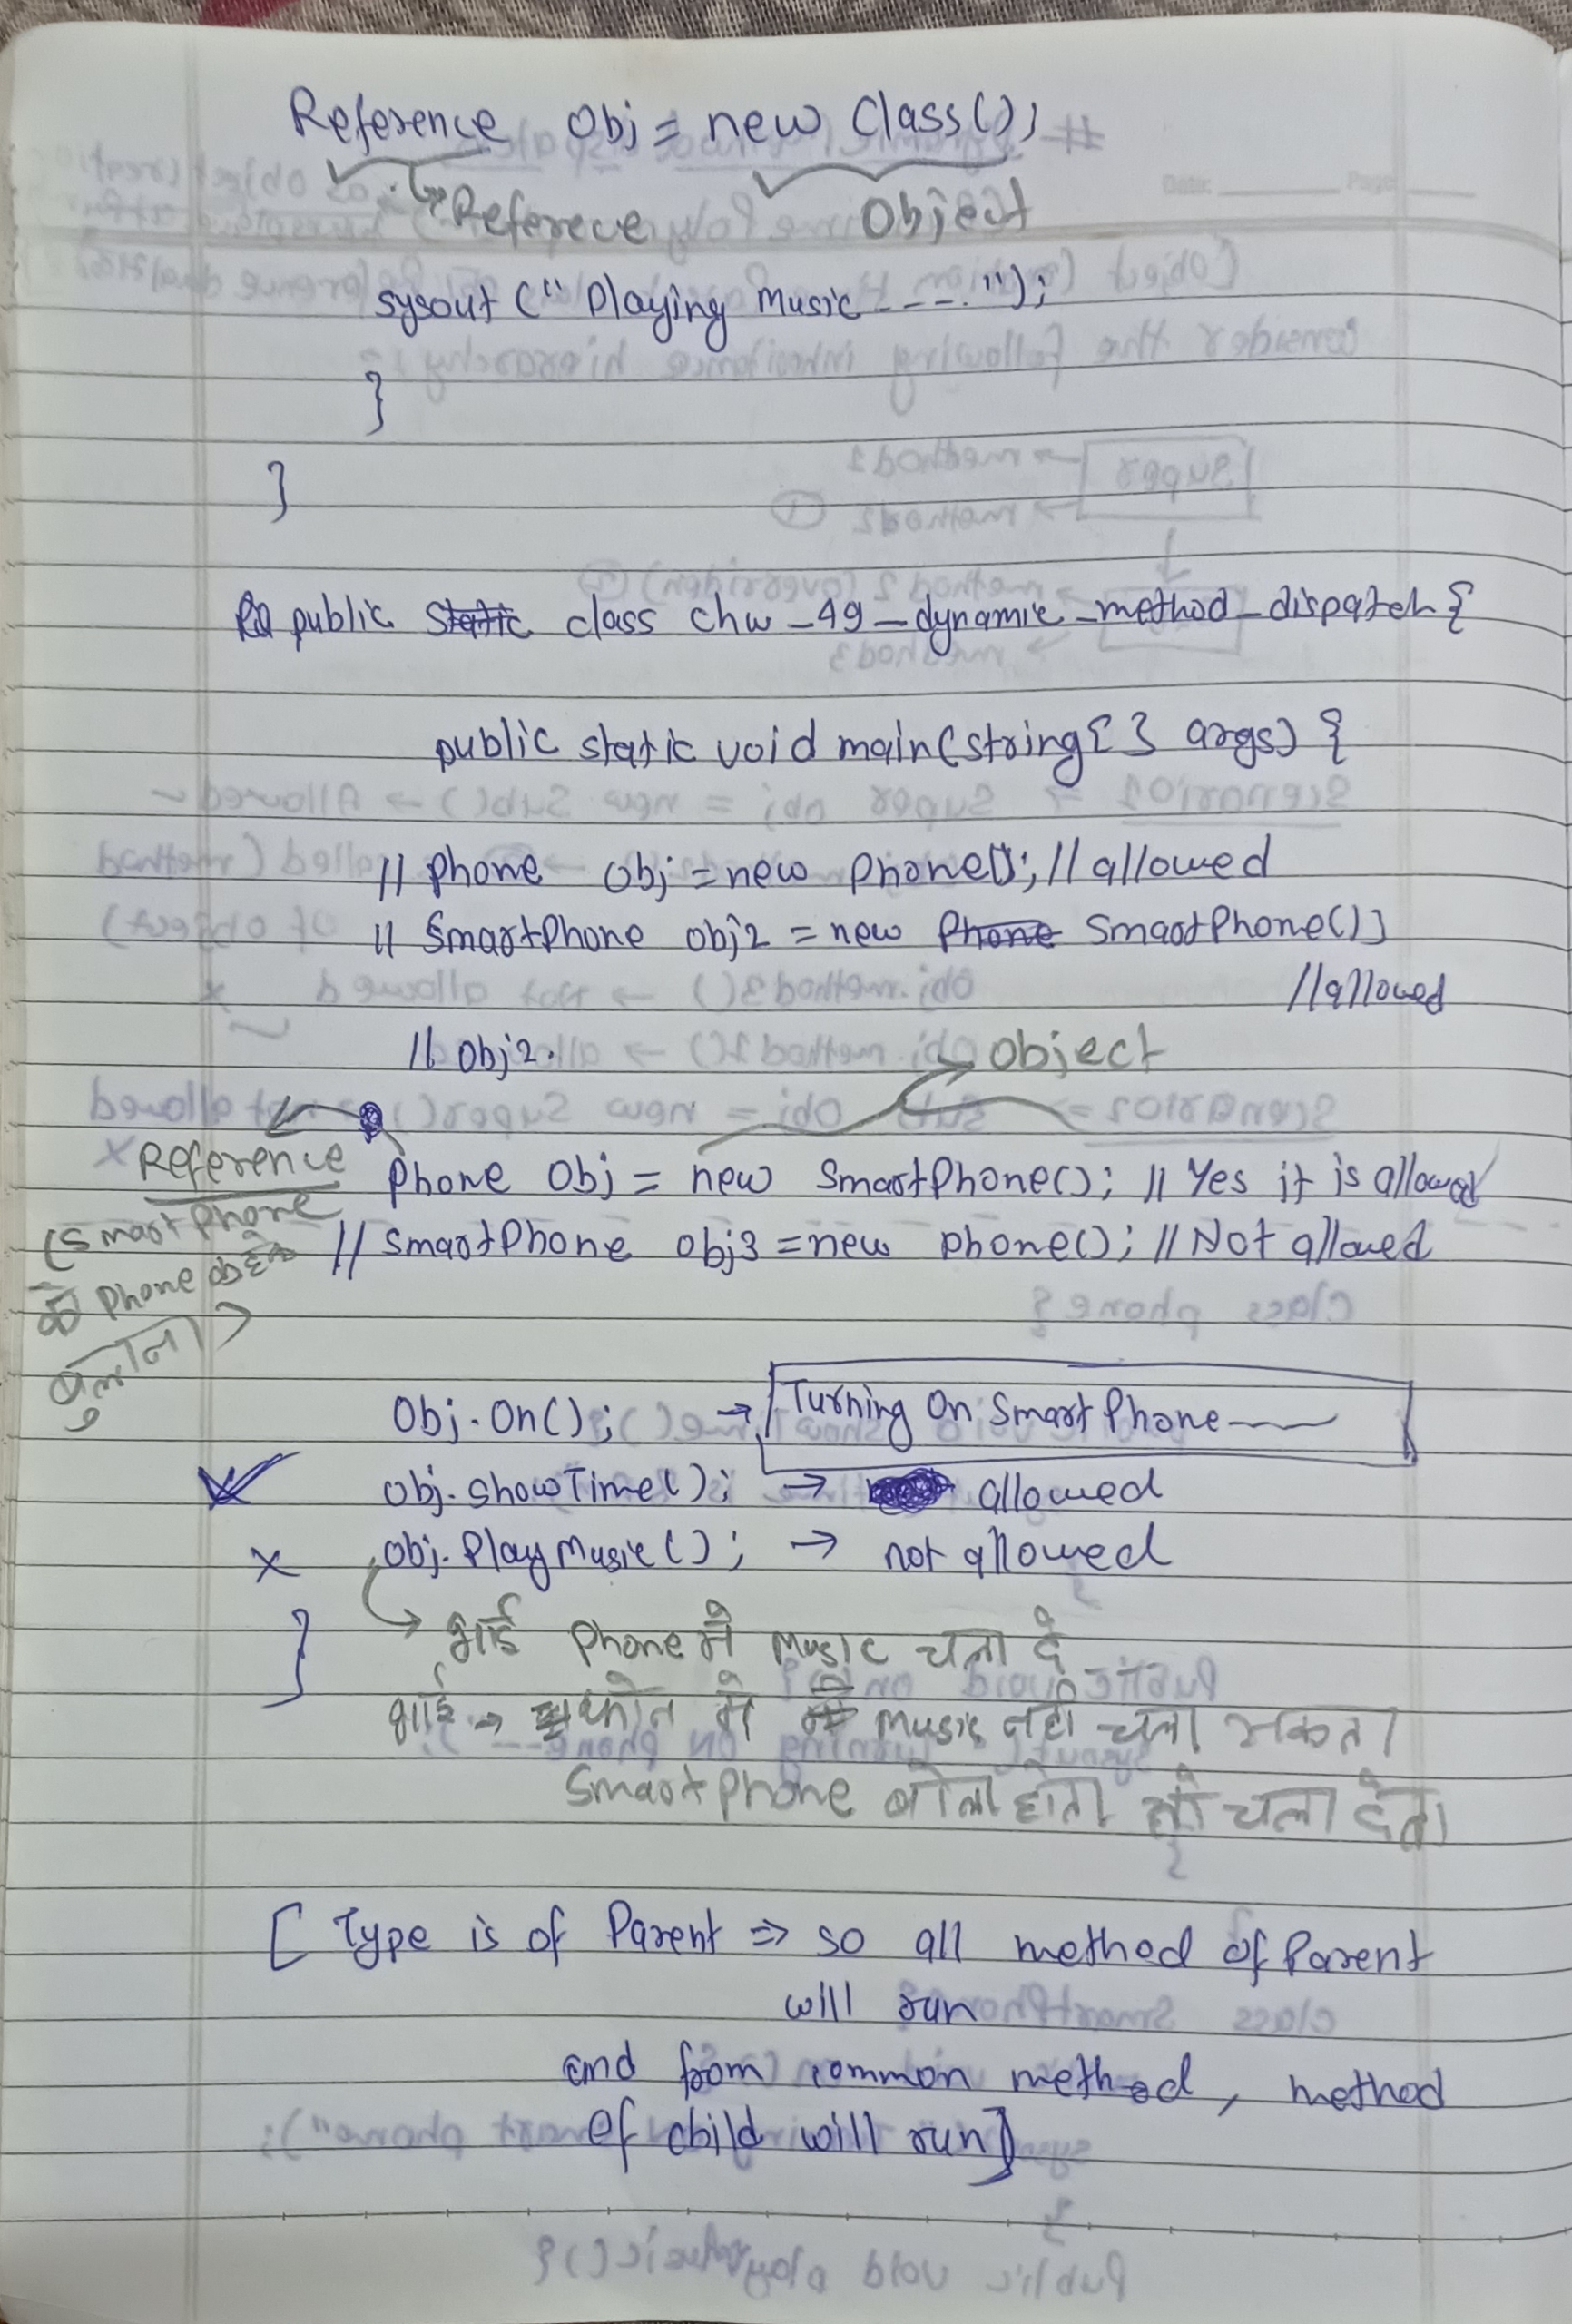 Reference Obj = new Class();
Referece Object
sysout ("Playing Music ----");
}
}
public Static class chw_49_dynamic_method_dispatch{
public static void main(string{ } args) {
// phone obj = new phone(); // allowed
// SmartPhone obj2 = new Phone SmartPhone();
// allowed
// Obj2.
Object
Reference
Phone Obj = new SmartPhone(); // Yes it is allowed
(Smartphone
को Phone कहके
बुलाना)
// smartPhone obj3 = new phone(); // Not allowed
Obj.On(); → Turning On SmartPhone
obj.showTime(); → allowed
x obj.PlayMusic(); → not allowed
} भाई Phone में Music चला दे
भाई → फोन में Music नहीं चला सकता
SmartPhone बोला होता तो चला देता
[ Type is of Parent ⇒ so all method of Parent
will run
and from common method, method
of child will run]